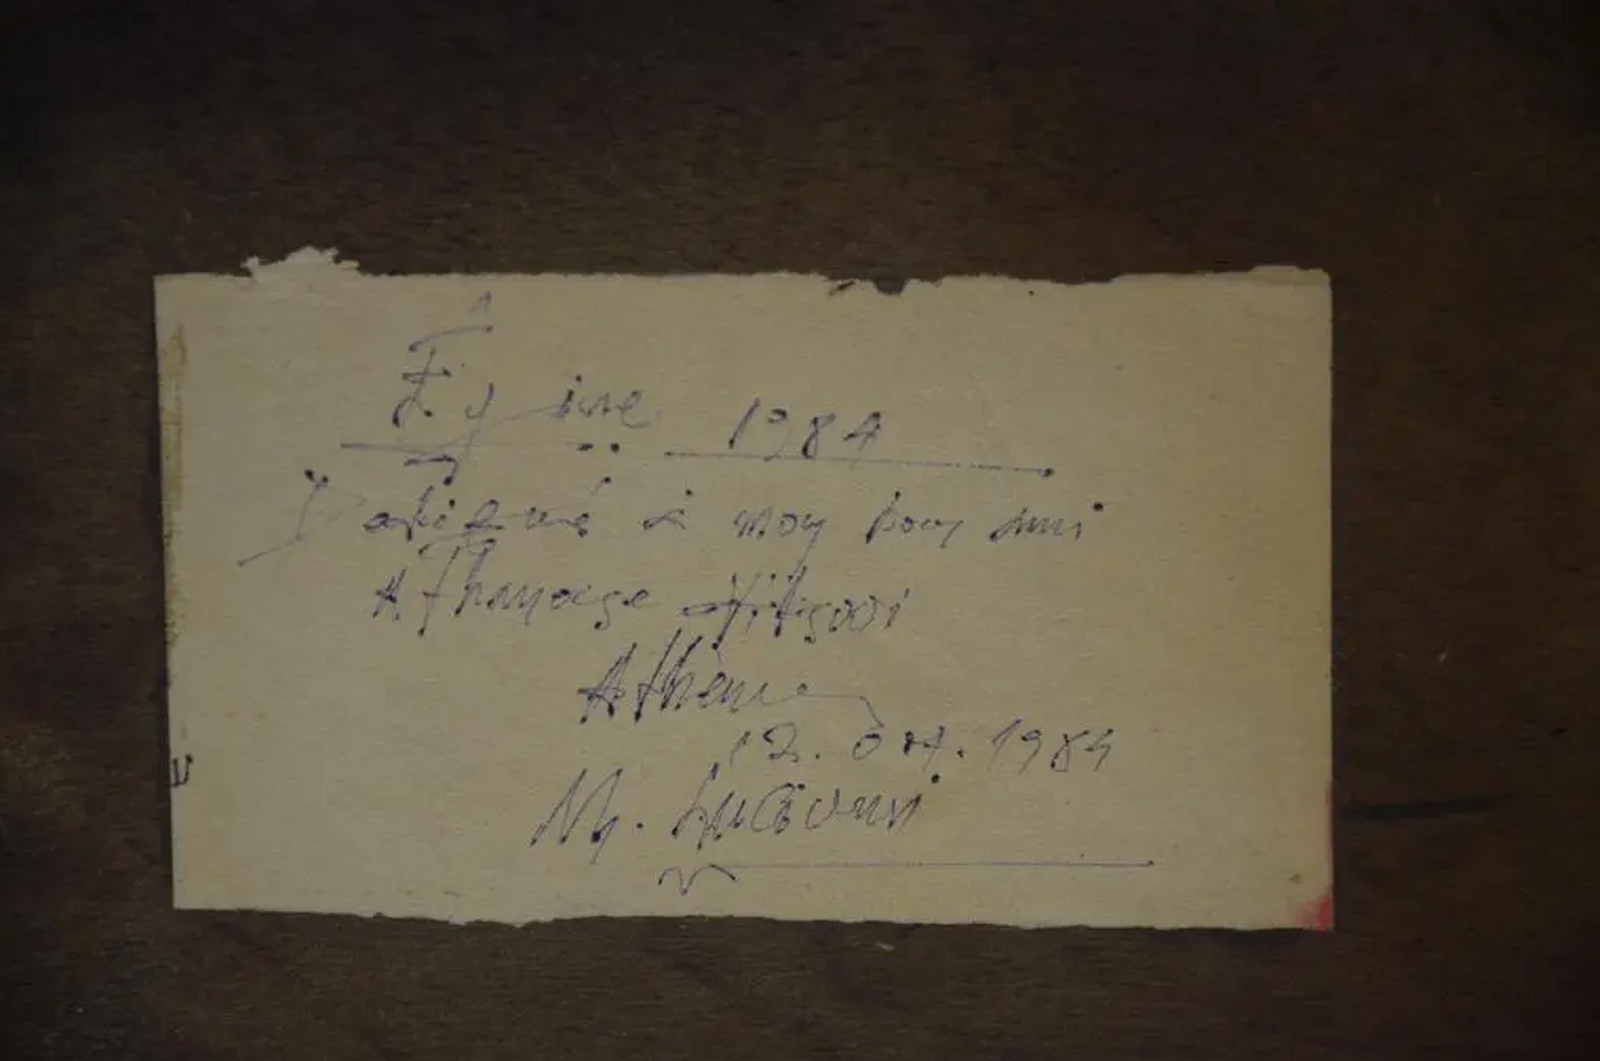 Égine 1984
Dédié à mon bon ami
Athanase
Athènes
12. Oct. 1984
M.